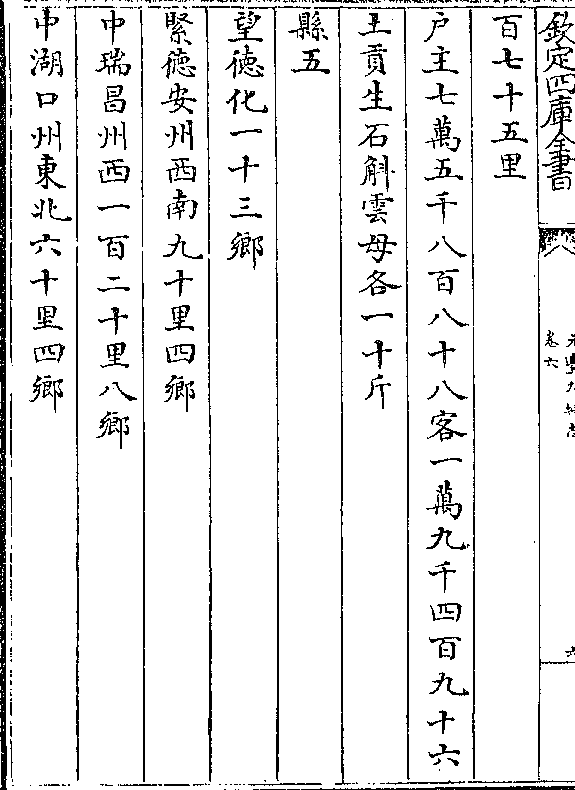 欽定四庫全書
元豐九域志
卷六
百七十五里
户主七萬五千八百八十八客一萬九千四百九十六
土貢生石斛雲母各一十斤
縣五
望德化一十三鄉
緊德安州西南九十里四鄉
中瑞昌州西一百二十里八鄉
中湖口州東北六十里四鄉